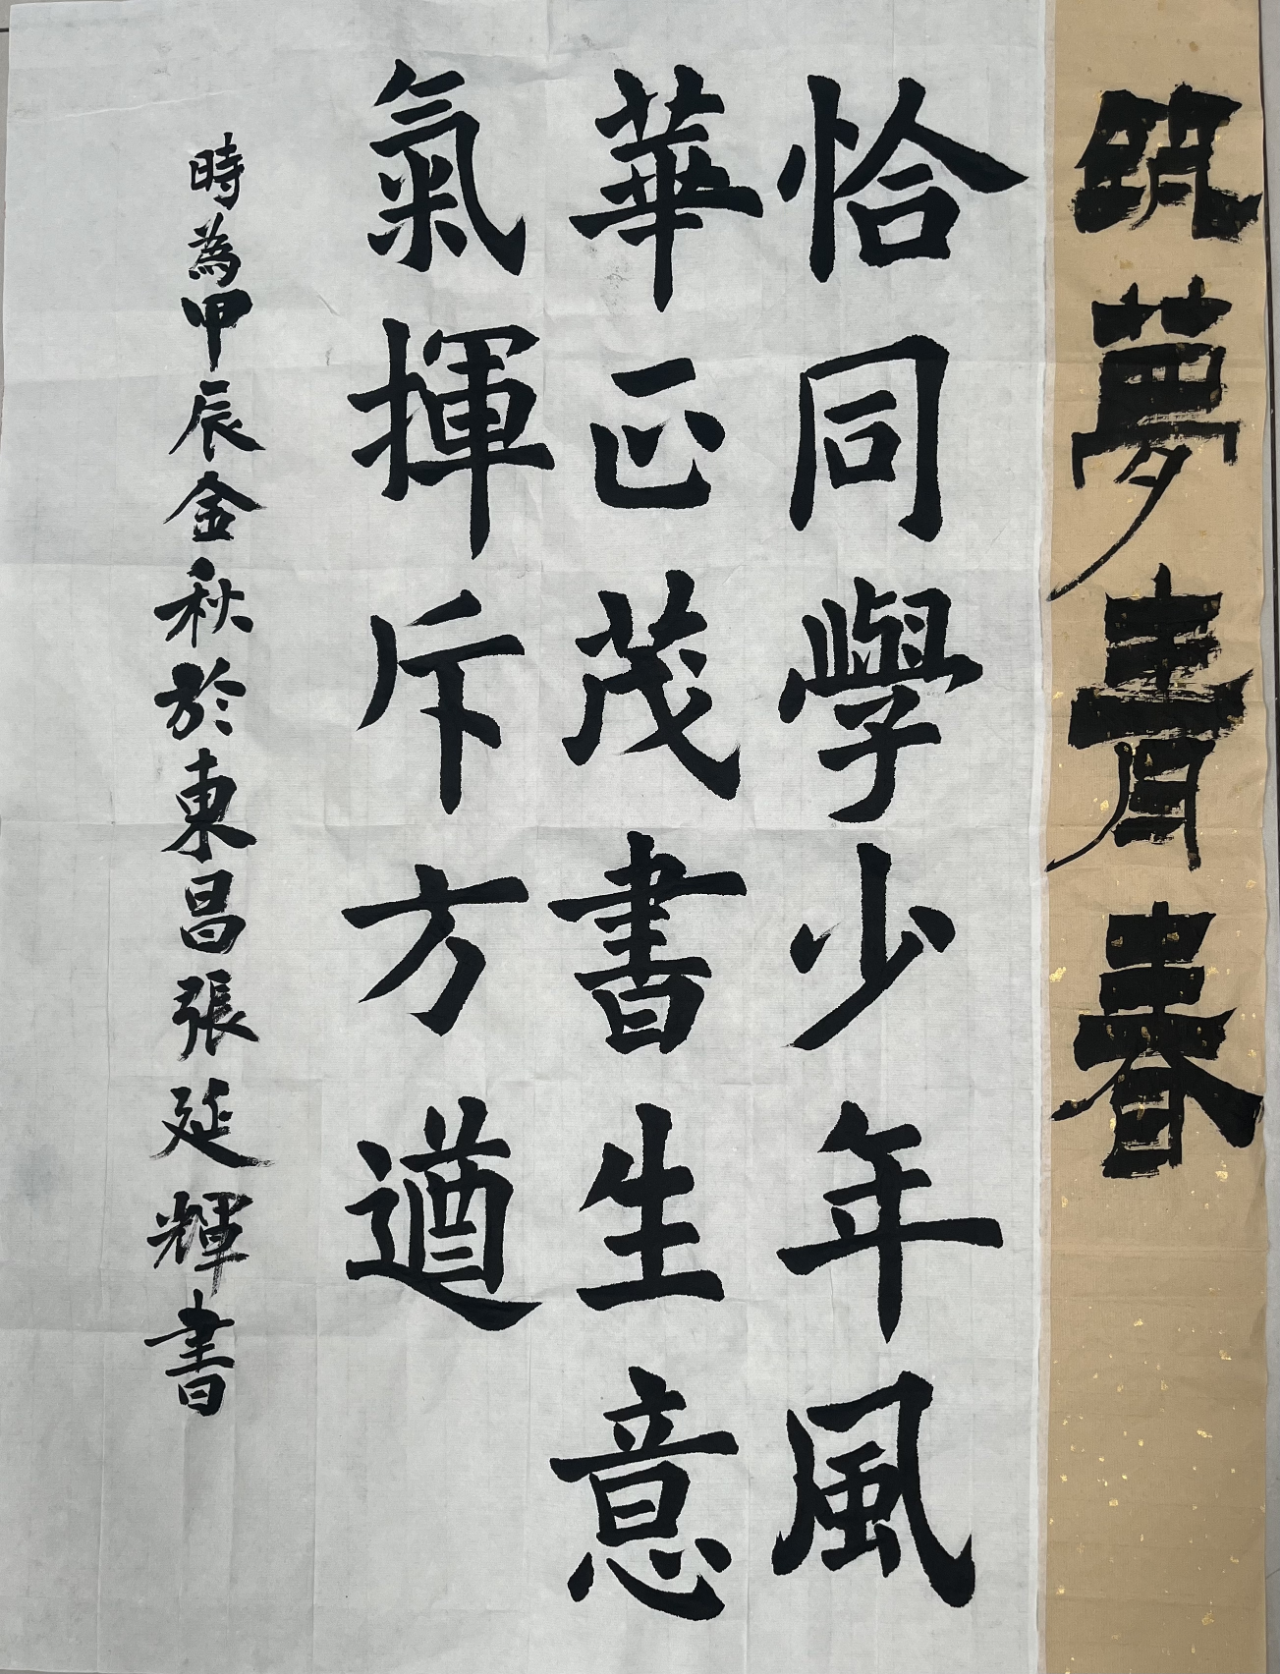 筑夢青春
恰同學少年風
華正茂書生意
氣揮斥方遒
時為甲辰金秋於東昌張延輝書